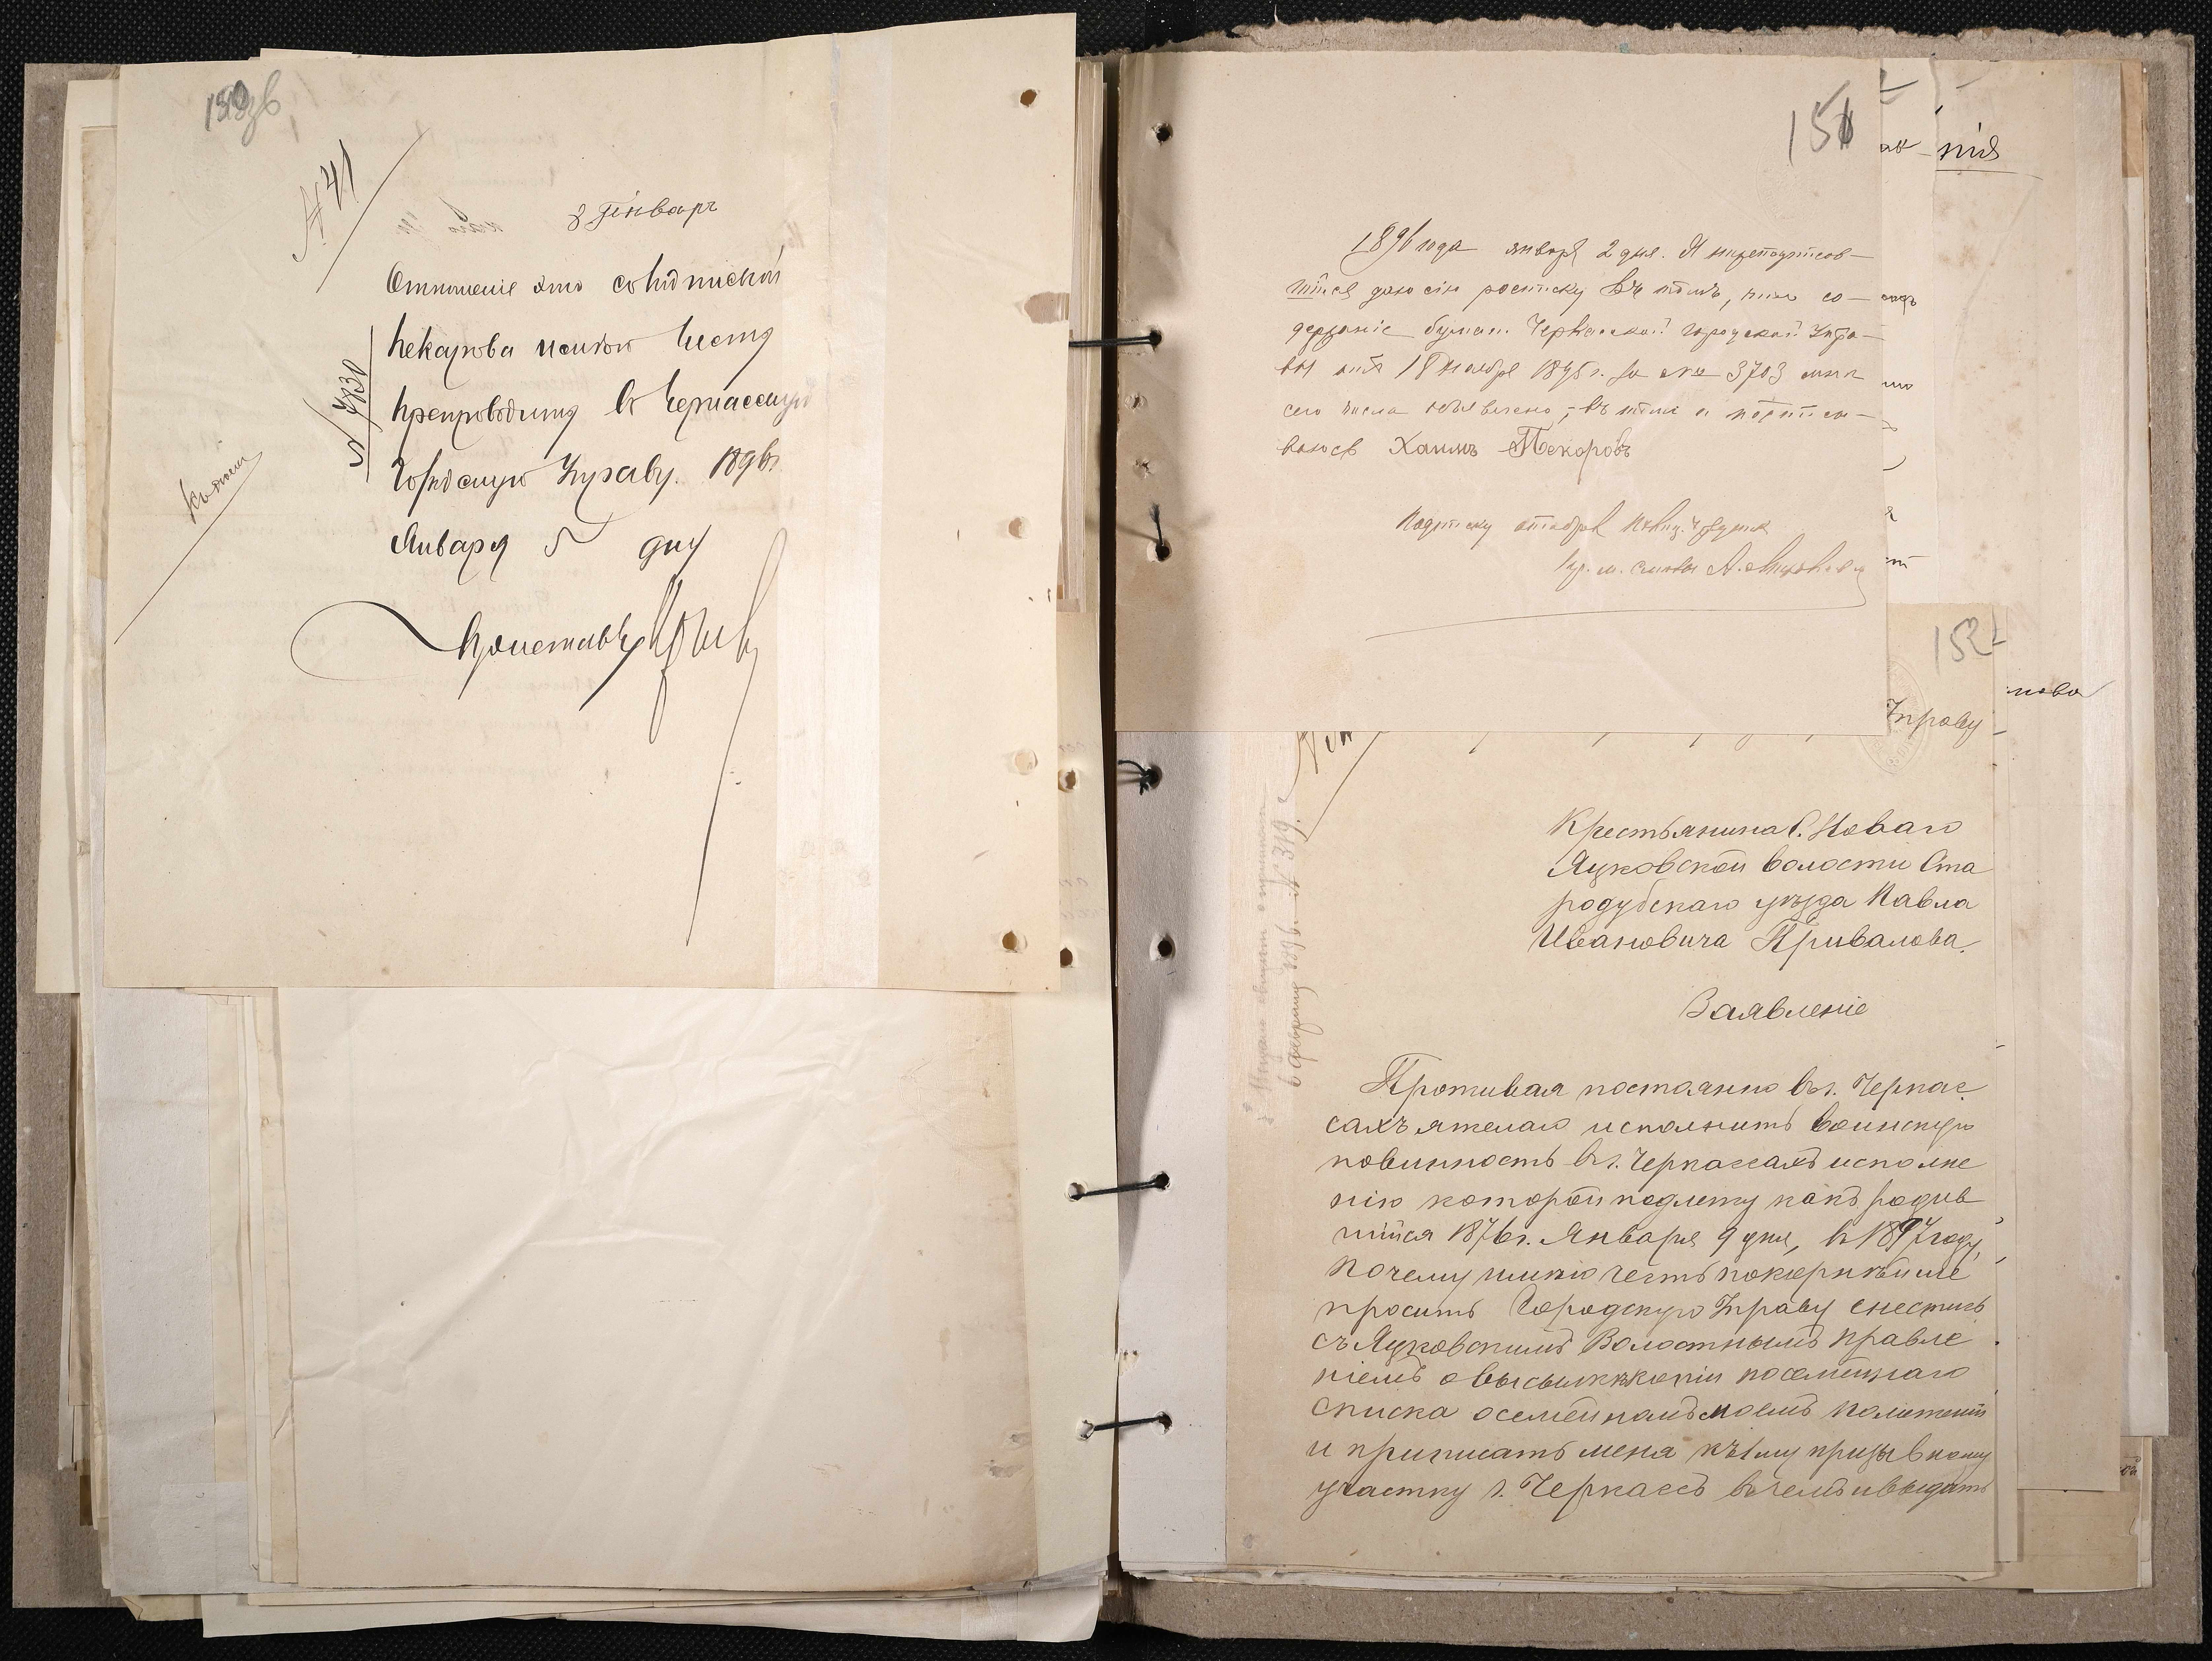 150зв
№ 41
8 Январ
Отношеніе это съ подпиской
Пекарова имѣю честь
препроводить въ Черкасскую
Городскую Управу. 1896 г.
Января 5 дня
Приставъ
№ 7830
151
1896 года января 2 дня. Я нижеподписав-
шійся даю сію росписку въ томъ, что со-
держаніе бумаги Черкасской Городской Упра-
вы отъ 18 Ноября 1895 г. за № 3703 мнѣ
сего числа объявлено, въ томъ и подписы-
ваюсь Хаимъ Пекаровъ
Подписку отобралъ
152
Управу
Крестьянина С. Новаго
Яцковской волости Ста
родубскаго уѣзда Павла
Ивановича Привалова.
Заявленіе
Проживая постоянно въ г. Черкас
сахъ я желаю исполнить воинскую
повинность въ г. Черкассахъ исполне
нію которой подлежу какъ родив
шійся 1876 г. Января 9 дня, въ 1897 году,
почему имѣю честь покорнѣйше
просить Городскую Управу снестись
съ Яцковскимъ Волостнымъ Правле
ніемъ о высылкѣ копіи посемейнаго
списка о семейномъ моемъ положеніи
и приписать меня къ 1му призывному
участку г. Черкассъ въ чемъ и выдать